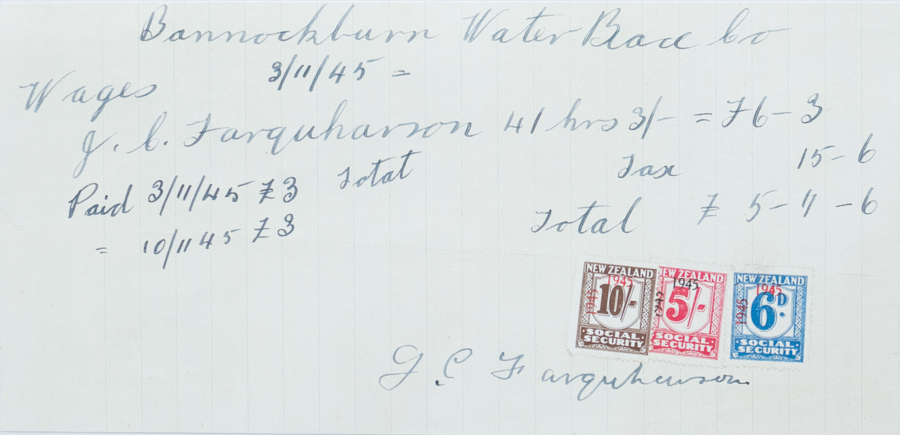 Bannockburn Water Race Co
3/11/45 =
Wages
J. C. Farquharson 41 hrs 3/- = £6-3
Tax 15-6
Paid 3/11/45 £3 Total
Total £ 5-11-6
= 10/11 45 £3
NEW ZEALAND 1945 1945 10/- SOCIAL SECURITY
NEW ZEALAND 1945 1945 5/- SOCIAL SECURITY
NEW ZEALAND 1945 1945 6D SOCIAL SECURITY
J C Farquharson